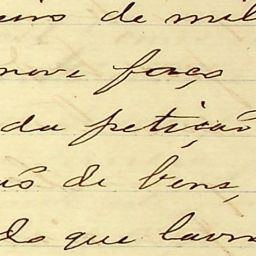 eiro de mil
nove faço
da petição
ão de bens,
do que lavro